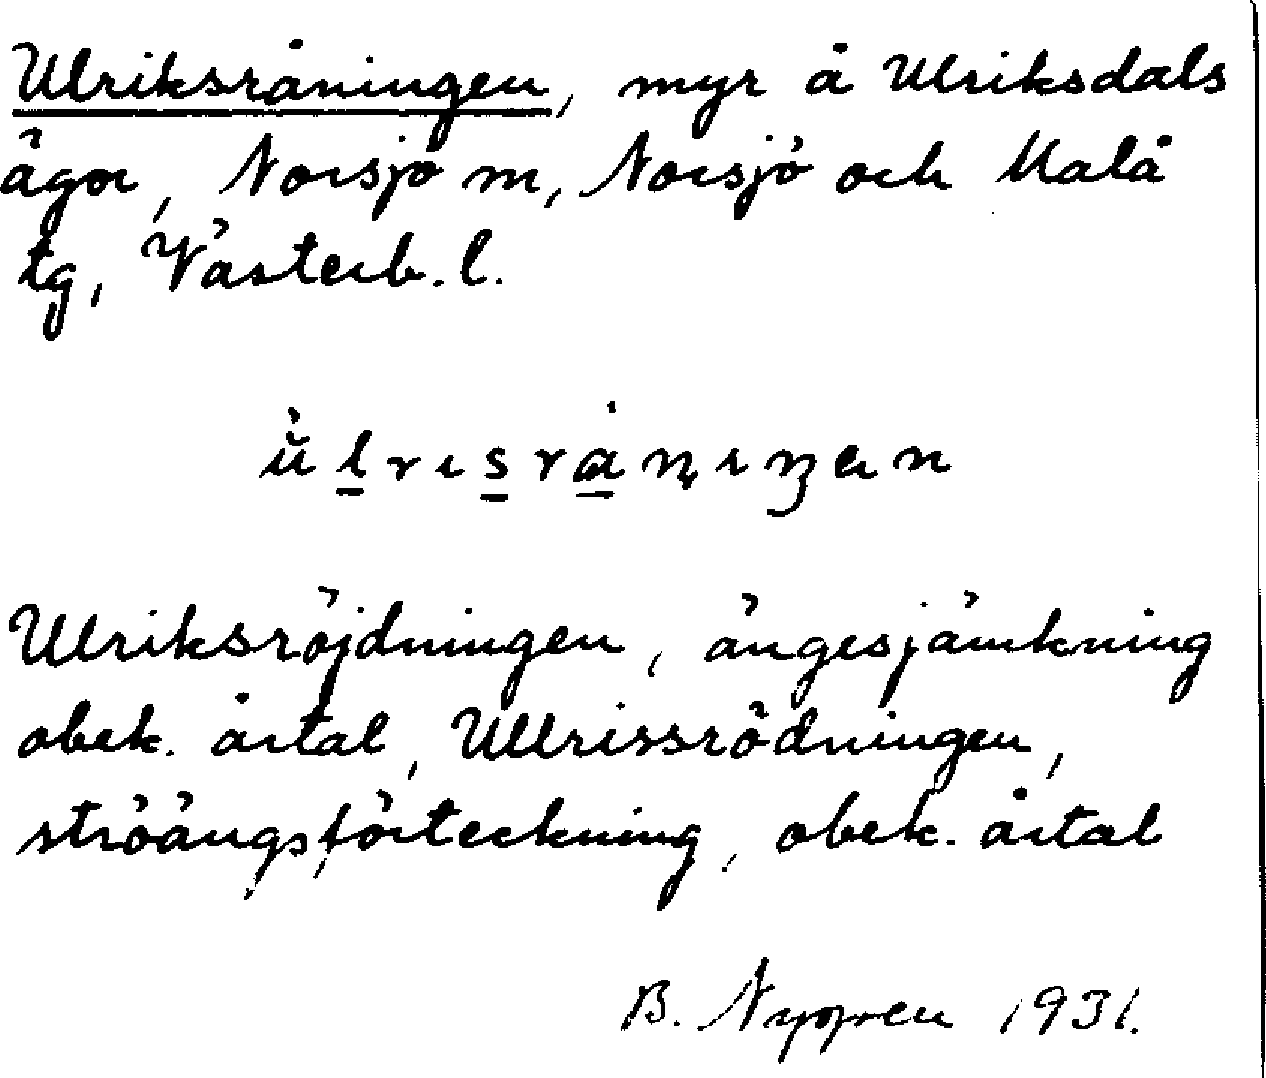 Ulriksråningen, myr å Ulriksdals
ägor, Norsjö m, Norsjö och Malå
tg, Västerb. l.
Ulriksröjdningen, ängesjämkning
obek. årtal, Ullrissrödningen,
ströängsförteckning, obek. årtal
B. Nygren 1931.